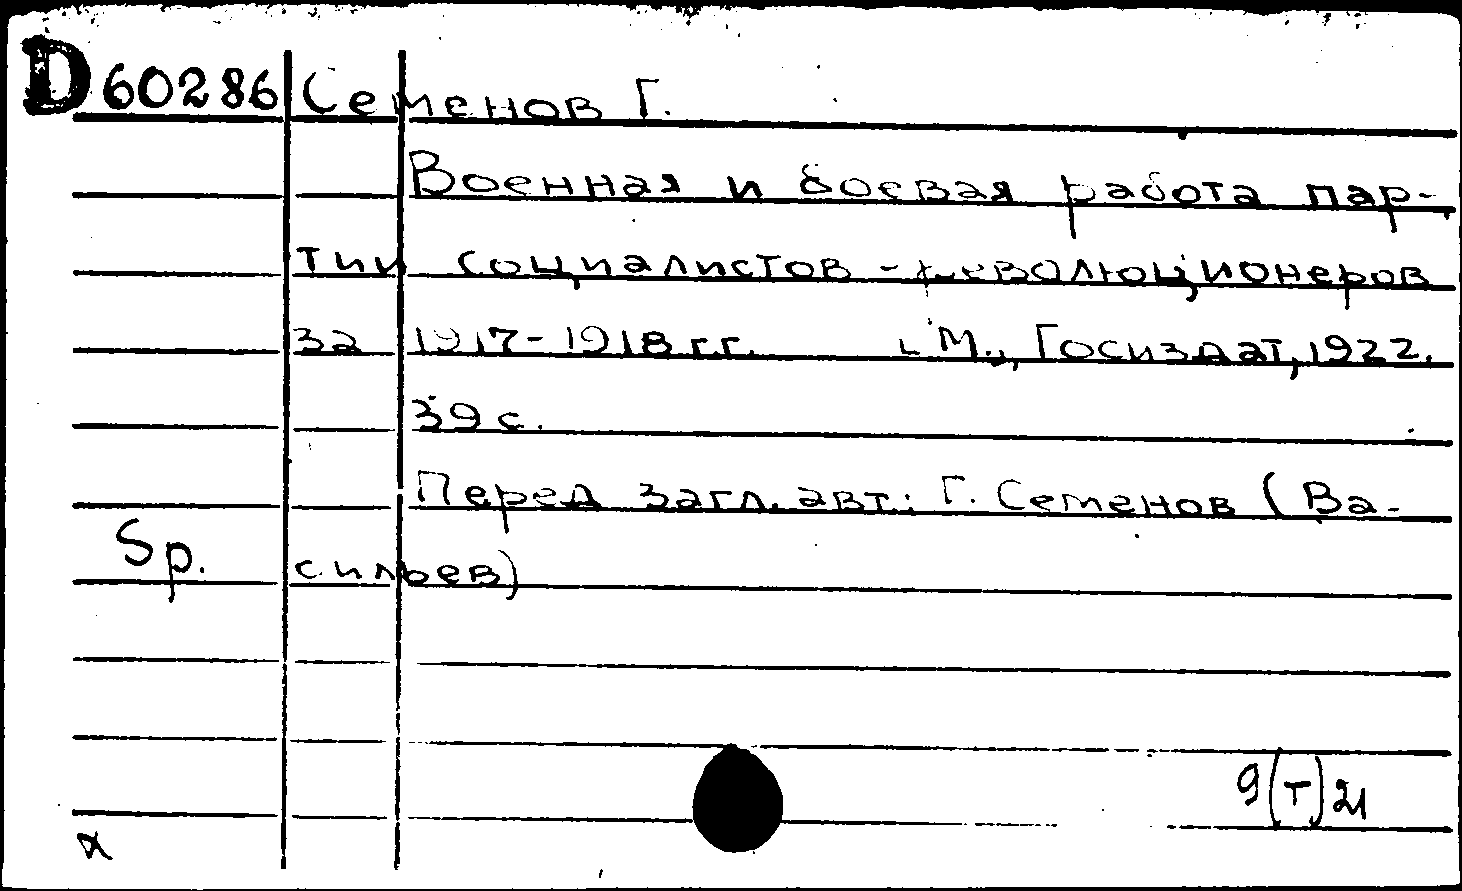 D 60286 Семенов Г.
Военная и боевая работа пар-
тии социалистов-революционеров
за 1917-1918 г.г. М., Госиздат, 1922.
39 с.
Перед загл. авт.: Г. Семенов (Ва-
Sp. сильев)
9(т)21